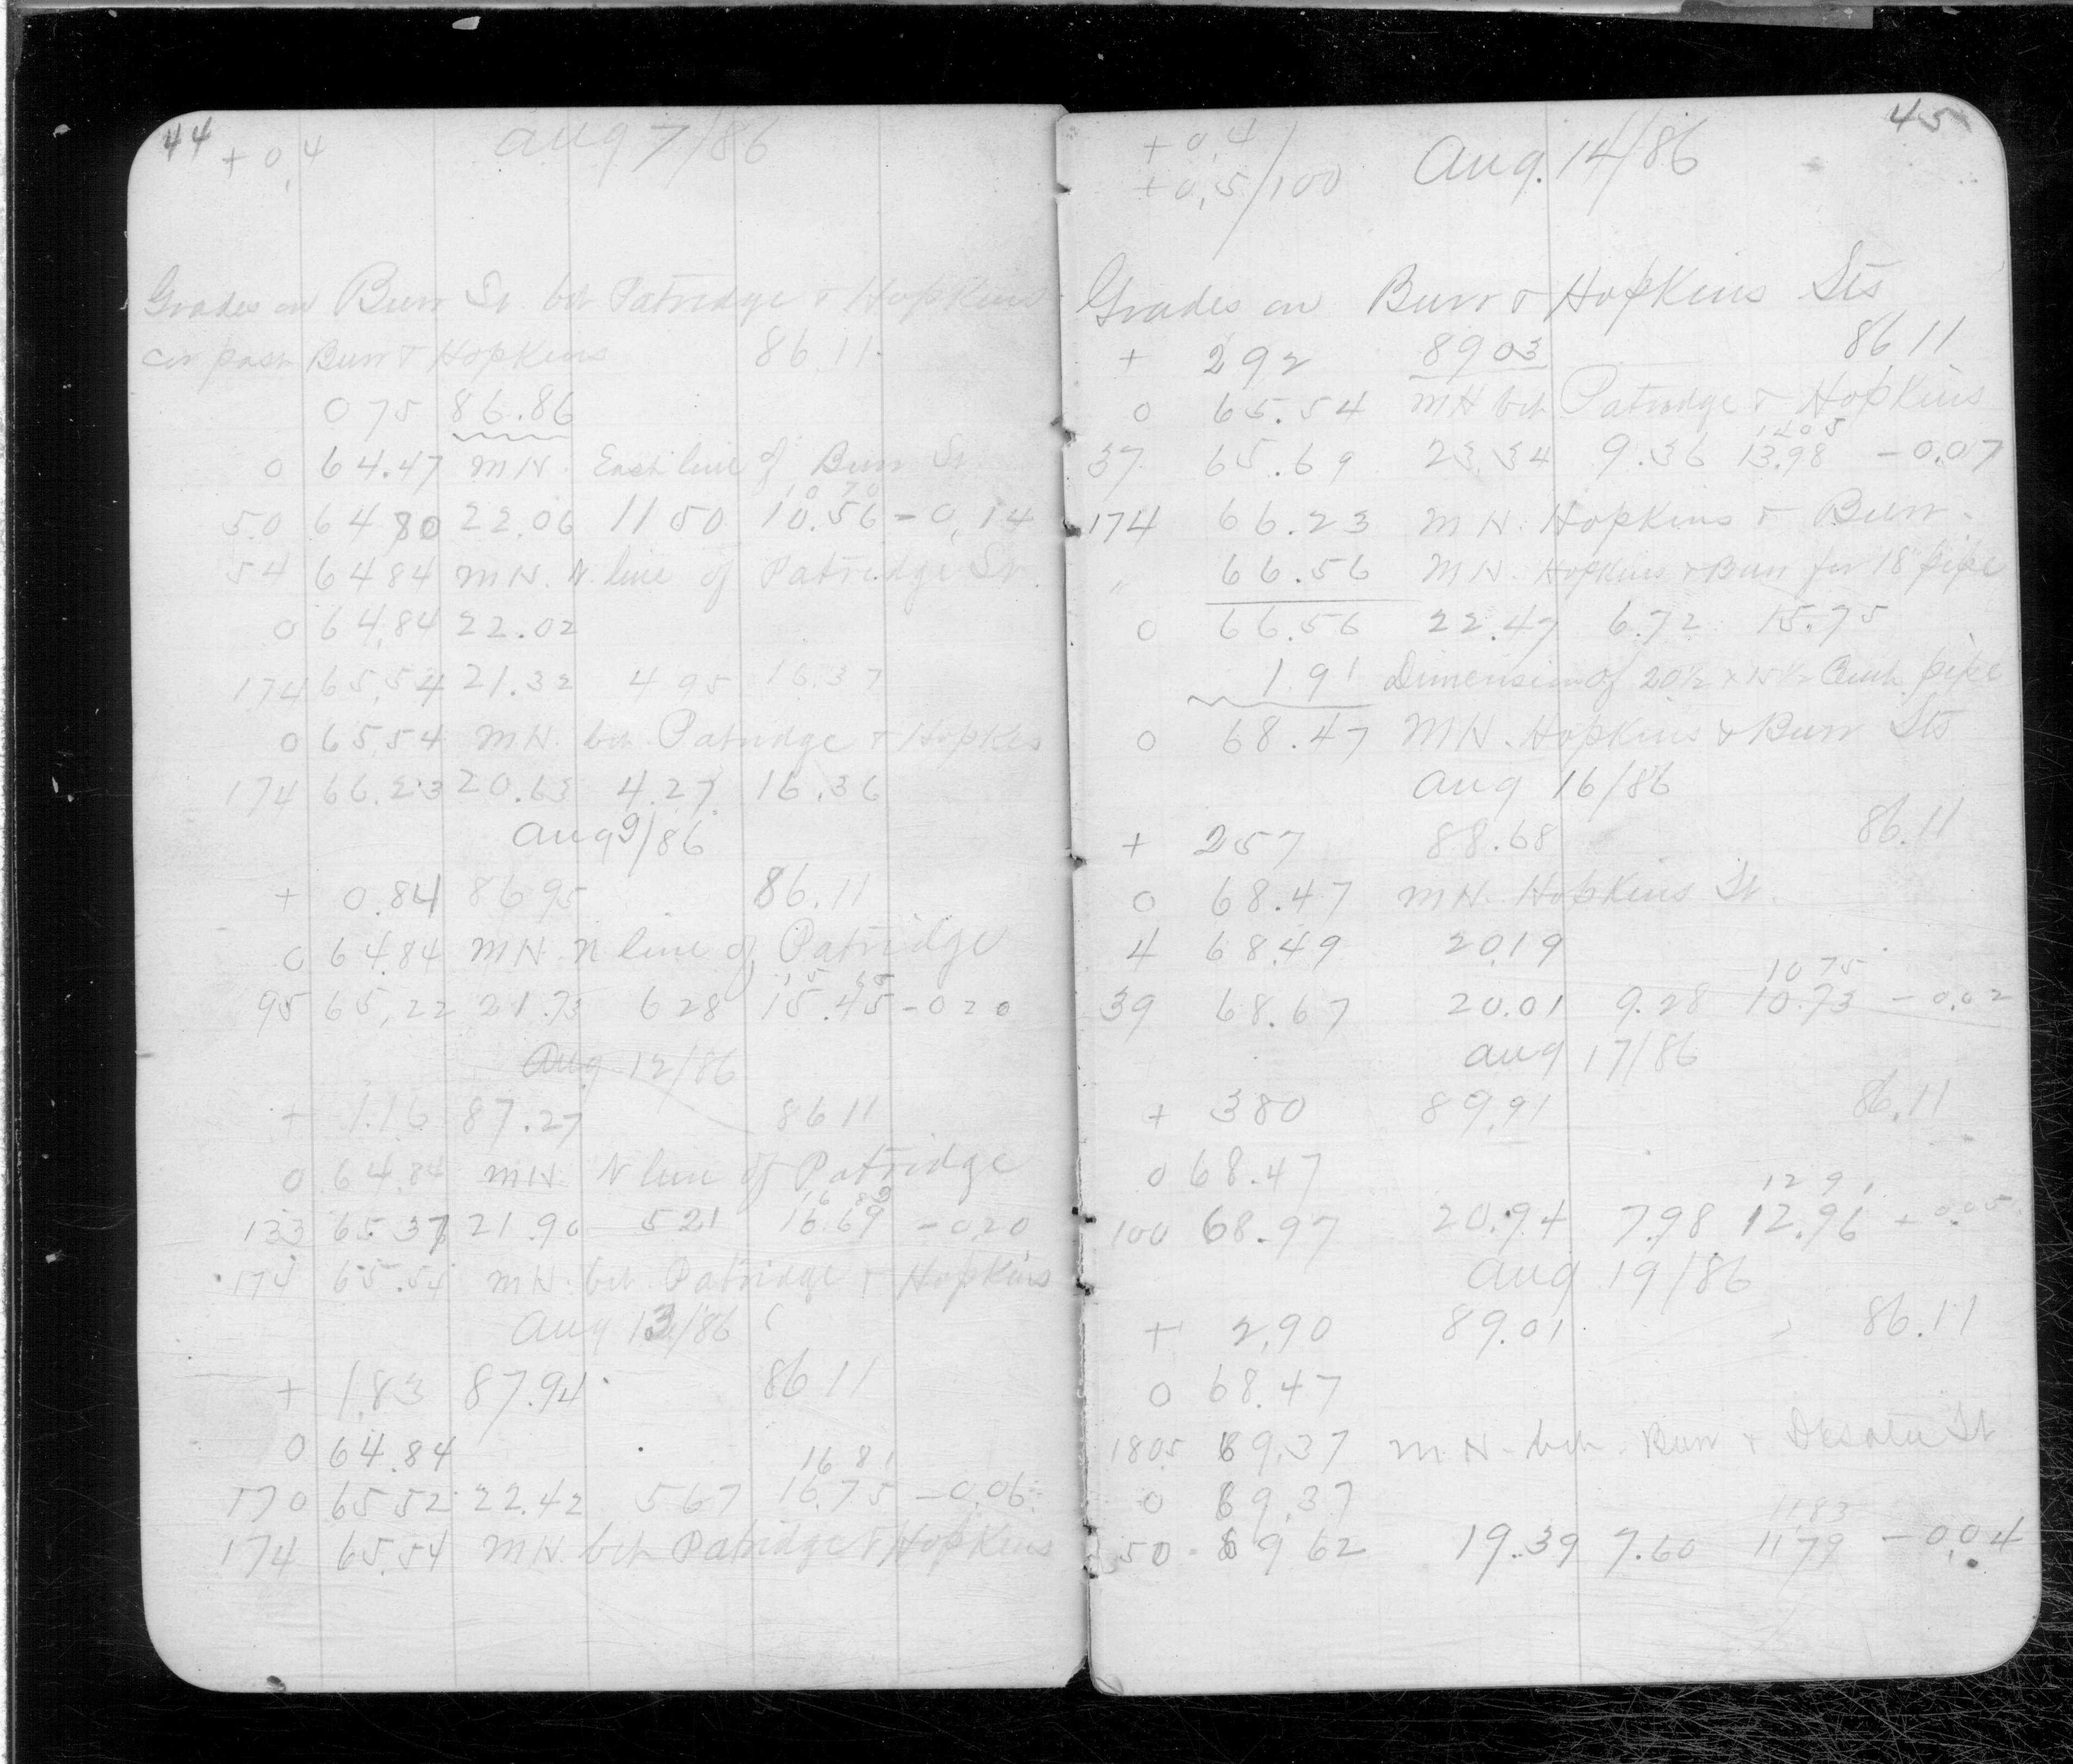 44
+0,4 Aug 7/86
Grades on Burr St bet Patridge & Hopkins
cor post Burr & Hopkins 86 11
0 75 86.86
0 64.47 MH. East line of Burr St
10 70
50 64 80 22.06 11 50 10.56 -0,14
54 64 84 MH. N. line of Patridge St.
0 64,84 22.02
174 65,54 21.32 4 95 16.37
0 65.54 MH. bet. Patridge & Hopkis
174 66.23 20.63 4.27 16.36
Aug 9/86
+ 0.84 86 95 86.11
0 64.84 MH. N line of Patridge
15 65
95 65,22 21.73 6 28 15.45 -0 20
Aug 12/86
+ 1.16 87.27 86 11
0 64.84 MH N line of Patridge
16 89
133 65.37 21.90 5 21 16.69 -0,20
174 65.54 MH. bet. Patridge & Hopkins
Aug 13/86
+ 1.83 87.94 86 11
0 64.84
16 81
170 65 52 22.42 5 67 16.75 -0.06
174 65.54 MH. bet Patridge & Hopkins
45
+0,4
+0,5/100 Aug. 14/86
Grades on Burr & Hopkins Sts
+ 2 92 89 03 86 11
0 65.54 MH bet Patridge & Hopkins
14 05
37 65.69 23.34 9.36 13.98 -0.07
174 66.23 MH. Hopkins & Burr.
" 66.56 MH. Hopkins & Burr for 18" pipe
0 66.56 22.47 6.72 15.75
1.91 Dimension of 20½ x 15½ pipe
0 68.47 MH. Hopkins & Burr Sts
Aug 16/86
+ 2 57 88.68 86.11
0 68.47 MH. Hopkins St.
4 68.49 20.19
10 75
39 68.67 20.01 9.28 10.73 -0.02
Aug 17/86
+ 3 80 89.91 86.11
0 68.47
12 91
100 68.97 20.94 7.98 12.96 +0.05
Aug 19/86
+ 2,90 89.01 86.11
0 68.47
180.5 69.37 MH. bet. Burr & St
0 69.37
11.83
50 69 62 19.39 7.60 11 79 -0,04